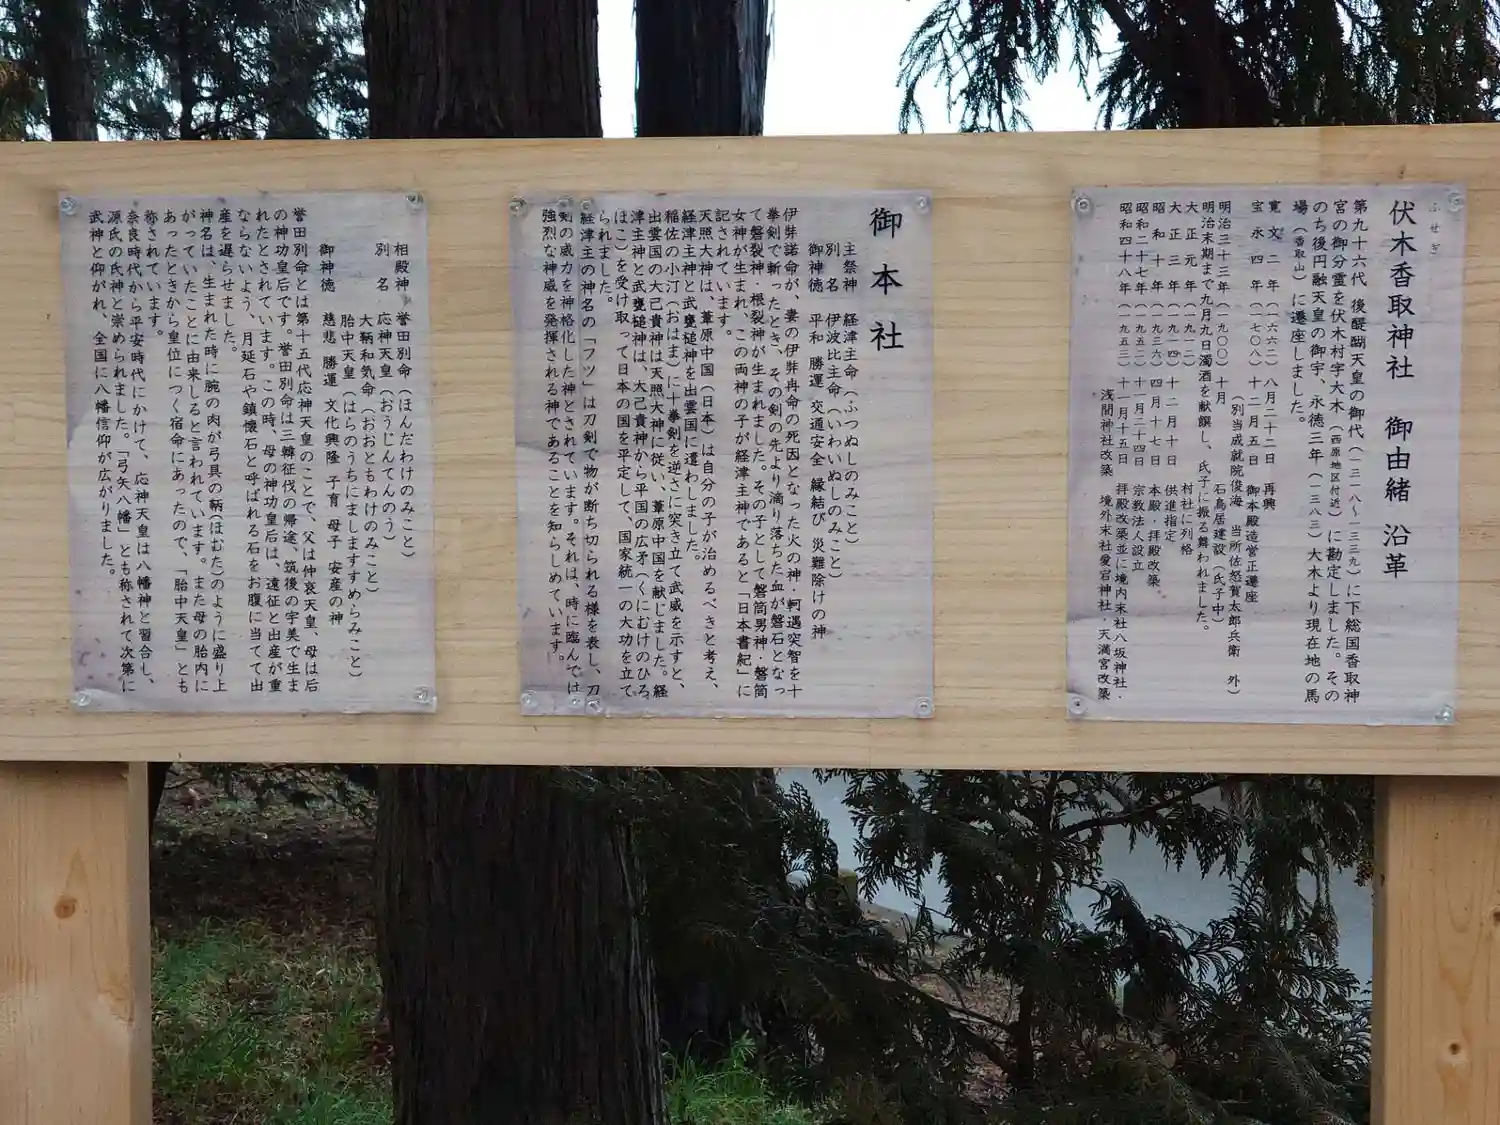 ふせぎ
伏木香取神社 御由緒 沿革
第九十六代 後醍醐天皇の御代(一三一八~一三三九)に下総国香取神
宮の御分霊を伏木村字大木(西原地区付近)に勘定しました。その
のち後円融天皇の御宇、永徳三年(一三八三)大木より現在地の馬
場(香取山)に遷座しました。
寛文二年(一六六二)八月二十二日 再興
宝永四年(一七〇八)十二月五日 御本殿造営正遷座
(別当成就院俊海 当所佐怒賀太郎兵衛 外)
明治三十三年(一九〇〇)十月 石鳥居建設(氏子中)
明治末期まで九月九日濁酒を献饌し、氏子に振る舞われました。
大正元年(一九一二) 村社に列格
大正三年(一九一四)十二月十日 供進指定
昭和十年(一九三六)四月十七日 本殿・拝殿改築
昭和二十七年(一九五二)十一月二十四日 宗教法人設立
昭和四十八年(一九五三)十一月十五日 拝殿改築並に境内末社八坂神社・
浅間神社改築 境外末社愛宕神社・天満宮改築
御本社
主祭神 経津主命(ふつぬしのみこと)
別名 伊波比主命(いわいぬしのみこと)
御神徳 平和 勝運 交通安全 縁結び 災難除けの神
伊弉諾命が、妻の伊弉冉命の死因となった火の神・軻遇突智を十
拳剣で斬ったとき、その剣の先より滴り落ちた血が磐石となっ
て磐裂神・根裂神が生まれました。その子として磐筒男神・磐筒
女神が生まれ、この両神の子が経津主神であると「日本書紀」に
記されています。
天照大神は、葦原中国(日本)は自分の子が治めるべきと考え、
経津主神と武甕槌神を出雲国に遣わしました。
稲佐の小汀(おはま)に十拳剣を逆さに突き立て武威を示すと、
出雲国の大己貴神は天照大神に従い、葦原中国を献じました。経
津主神と武甕槌神は、大己貴神から平国の広矛(くにむけのひろ
ほこ)を受け取って日本の国を平定して、国家統一の大功を立て
られました。
経津主の神名の「フツ」は刀剣で物が断ち切られる様を表し、刀
剣の威力を神格化した神とされています。それは、時に臨んでは
強烈な神威を発揮される神であることを知らしめています。
相殿神 誉田別命(ほんだわけのみこと)
別名 応神天皇(おうじんてんのう)
大鞆和気命(おおともわけのみこと)
胎中天皇(はらのうちにましますすめらみこと)
御神徳 慈悲 勝運 文化興隆 子育 母子 安産の神
誉田別命とは第十五代応神天皇のことで、父は仲哀天皇、母は后
の神功皇后です。誉田別命は三韓征伐の帰途、筑後の宇美で生ま
れたとされています。この時、母の神功皇后は、遠征と出産が重
ならないよう、月延石や鎮懐石と呼ばれる石をお腹に当てて出
産を遅らせました。
神名は、生まれた時に腕の肉が弓具の鞆(ほむた)のように盛り上
がっていたことに由来しると言われています。また母の胎内に
あったときから皇位につく宿命にあったので、「胎中天皇」とも
称されています。
奈良時代から平安時代にかけて、応神天皇は八幡神と習合し、
源氏の氏神と崇められました。「弓矢八幡」とも称されて次第に
武神と仰がれ、全国に八幡信仰が広がりました。